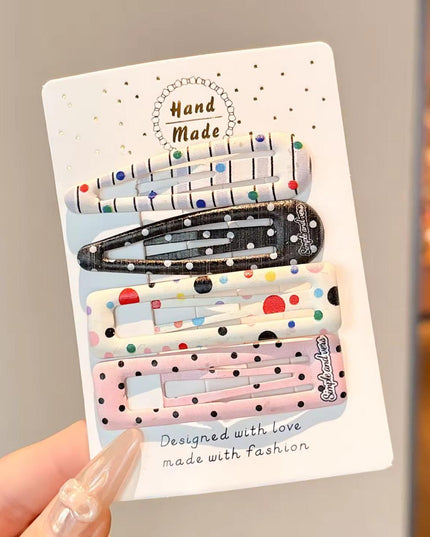 Hand
Made
Simple and vers
Simple and vers
Designed with love
made with fashion